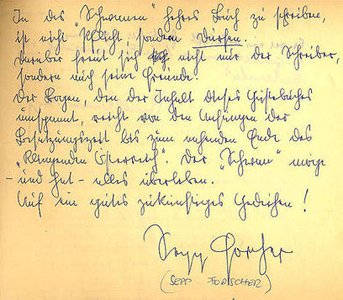 In des "Schwanen" hehres Buch zu schreiben,
ist nicht Pflicht, sondern Dürfen.
Darüber freut sich nicht nur der Schreiber,
sondern auch seine Freunde.
Der Bogen, den der Inhalt dieses Gästebuches
umspannt, reicht von den Anfängen der
Besetzungszeit bis zum nahenden Ende des
"Klingenden Österreich". Der "Schwan" möge
- und hat - alles überleben.
Auf ein gutes zukünftiges Gedeihen!
Sepp Forcher
(SEPP FORSCHER)